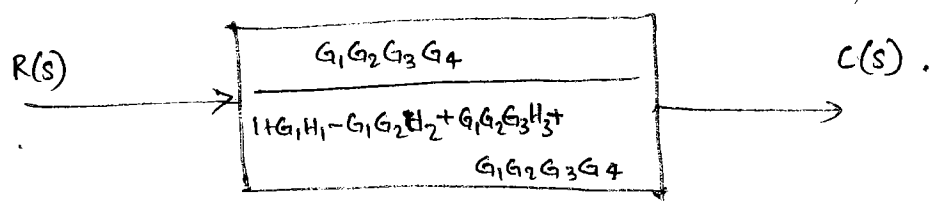 R(s)
G₁G₂G₃G₄
C(s) .
1+G₁H₁-G₁G₂H₂+G₁G₂G₃H₃+
G₁G₂G₃G₄